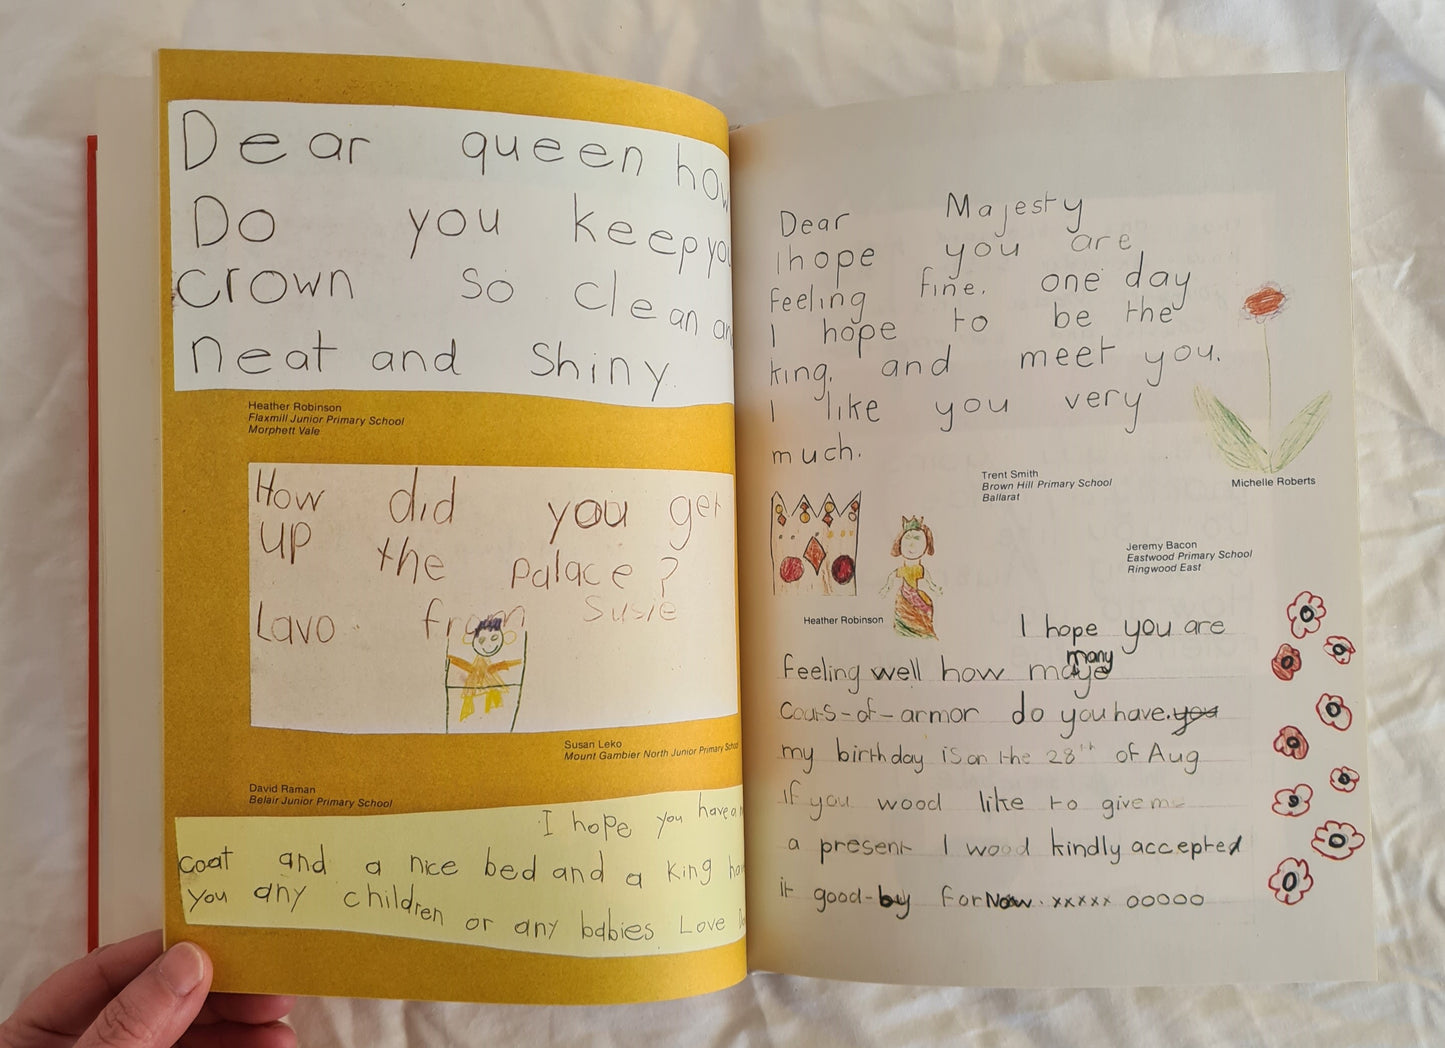 Dear queen how
Do you keep you
crown so clean an
neat and Shiny.
Heather Robinson
Flaxmill Junior Primary School
Morphett Vale
How did you get
up the palace?
Lavo from Susie
Susan Leko
Mount Gambier North Junior Primary School
David Raman
Belair Junior Primary School
I hope you have a
coat and a nice bed and a King hav
you any children or any babies. Love
Dear Majesty
I hope you are
Feeling Fine. one day
I hope to be the
king. and meet you.
I like you very
much.
Trent Smith
Brown Hill Primary School
Ballarat
Michelle Roberts
Heather Robinson
Jeremy Bacon
Eastwood Primary School
Ringwood East
I hope you are
feeling well how many
coats-of-armor do you have. you
my birthday is on the 28th of Aug
if you wood like to give me
a present I wood kindly accepted
it good-by for Now. xxxxx ooooo